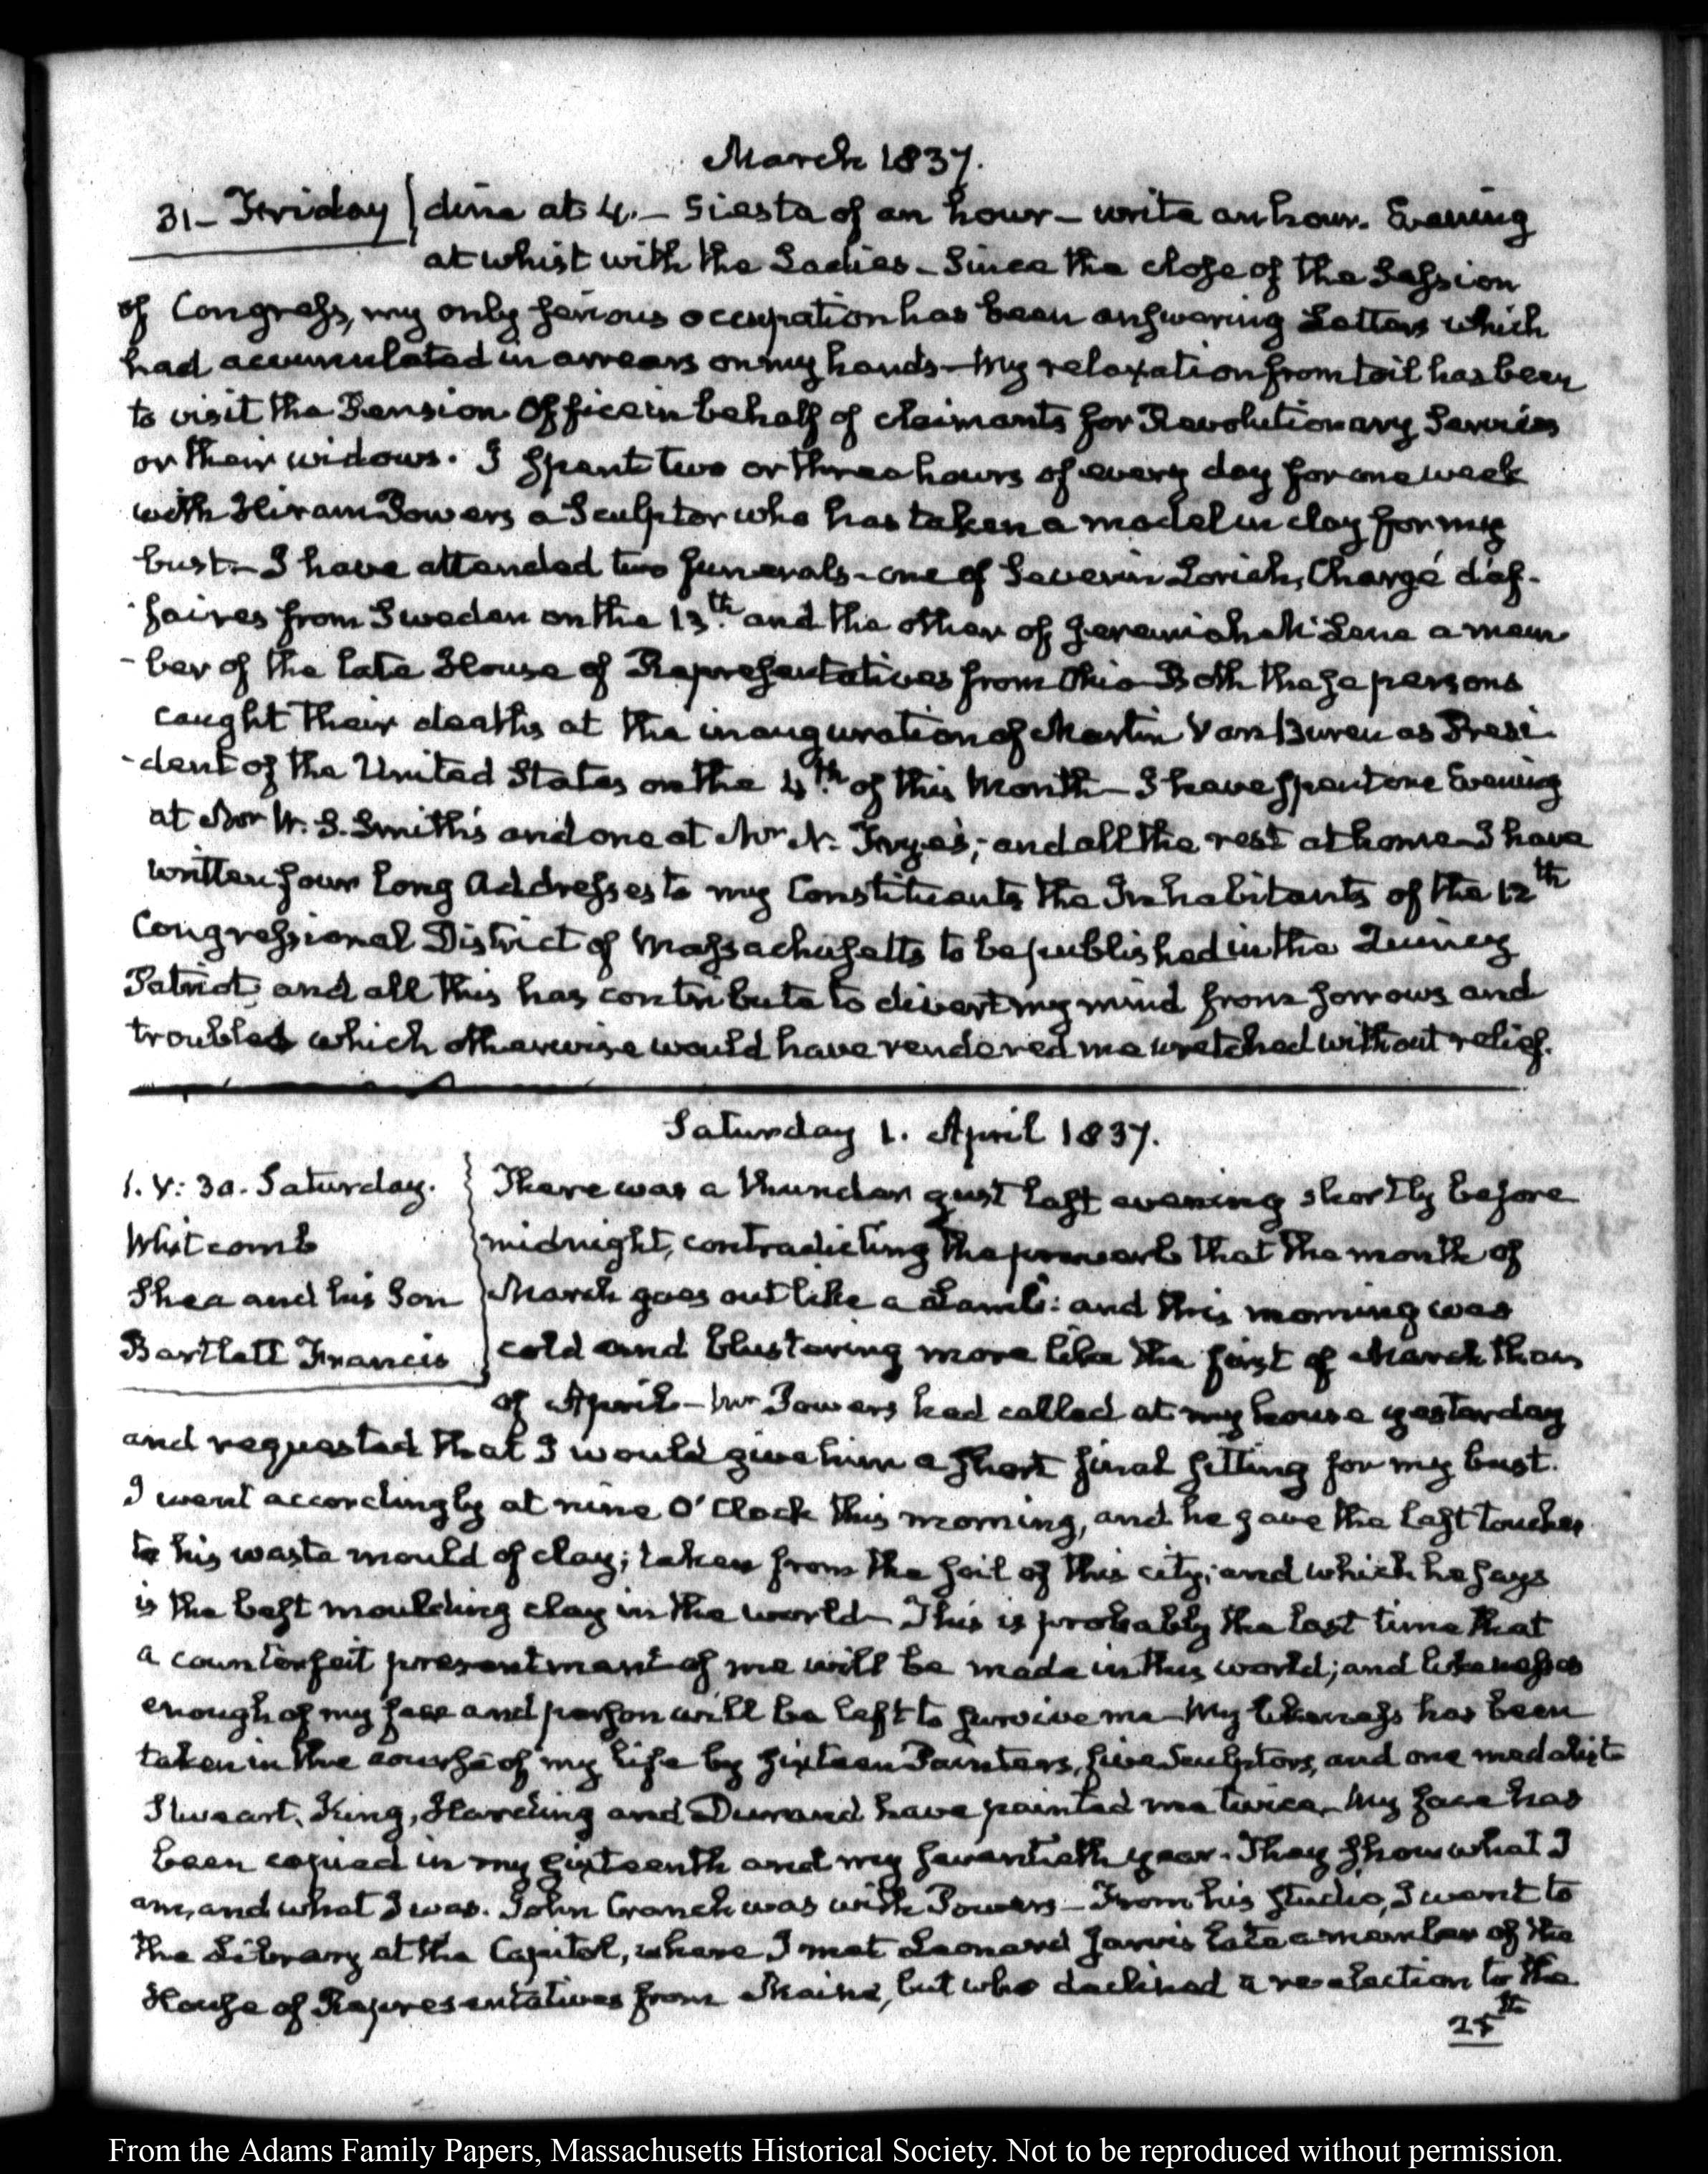 March 1837.
31– Friday
dine at 4.– Siesta of an hour – write an hour. Evening
at whist with the Ladies – Since the close of the Session
of Congress, my only serious occupation has been answering Letters which
had accumulated in arrears on my hands – My relaxation from toil has been
to visit the Pension Office in behalf of claimants for Revolutionary Services
or their widows. I spent two or three hours of every day for one week
with Hiram Powers a Sculptor who has taken a model in clay for my
bust – I have attended two funerals – one of Severin Lorich, Chargé d'af-
-faires from Sweden on the 13.th and the other of Jeremiah M. Lene a mem
-ber of the late House of Representatives from Ohio – Both these persons
caught their deaths at the inauguration of Martin Van Buren as Presi-
-dent of the United States on the 4.th of this Month – I have spent one Evening
at Mr W. S. Smith's and one at Mr N. Frye's; and all the rest at home – I have
written four long Addresses to my Constituents the Inhabitants of the 12th
Congressional District of Massachusetts to be published in the Quincy
Patriot, and all this has contribute to divert my mind from sorrows and
troubles which otherwise would have rendered me wretched without relief.
Saturday 1. April 1837.
1. V: 30. Saturday.
Whitcomb
Shea and his Son
Bartlett Francis
There was a thunder gust last evening shortly before
midnight, contradicting the proverb that the month of
March goes out like a Lamb: and this morning was
cold and blustering more like the first of March than
of April – Mr Powers had called at my house yesterday
and requested that I would give him a short final sitting for my bust.
I went accordingly at nine O'Clock this morning, and he gave the last touches
to his waste mould of clay; taken from the soil of this city; and which he says
is the best moulding clay in the world – This is probably the last time that
a counterfeit presentment of me will be made in this world; and likenesses
enough of my face and person will be left to survive me – My likeness has been
taken in the course of my life by sixteen Painters, five Sculptors, and one medalist
Stuart, King, Harding and Durand have painted me twice – My face has
been copied in my sixteenth and my seventieth year. They show what I
am, and what I was. John Cranch was with Powers – From his studio, I went to
the Library at the Capitol, where I met Leonard Jarvis late a member of the
House of Representatives from Maine, but who declined a reelection to the
25th
From the Adams Family Papers, Massachusetts Historical Society. Not to be reproduced without permission.